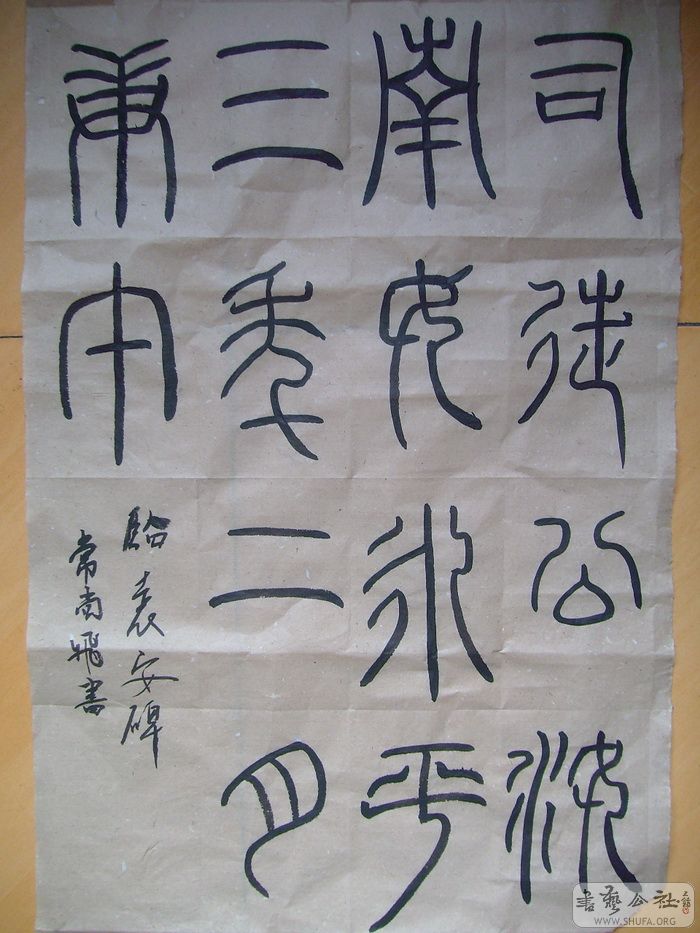 司徒公汝
南女永平
三年二月
庚午
臨袁安碑
常尚飛書
書藝公社
WWW.SHUFA.ORG